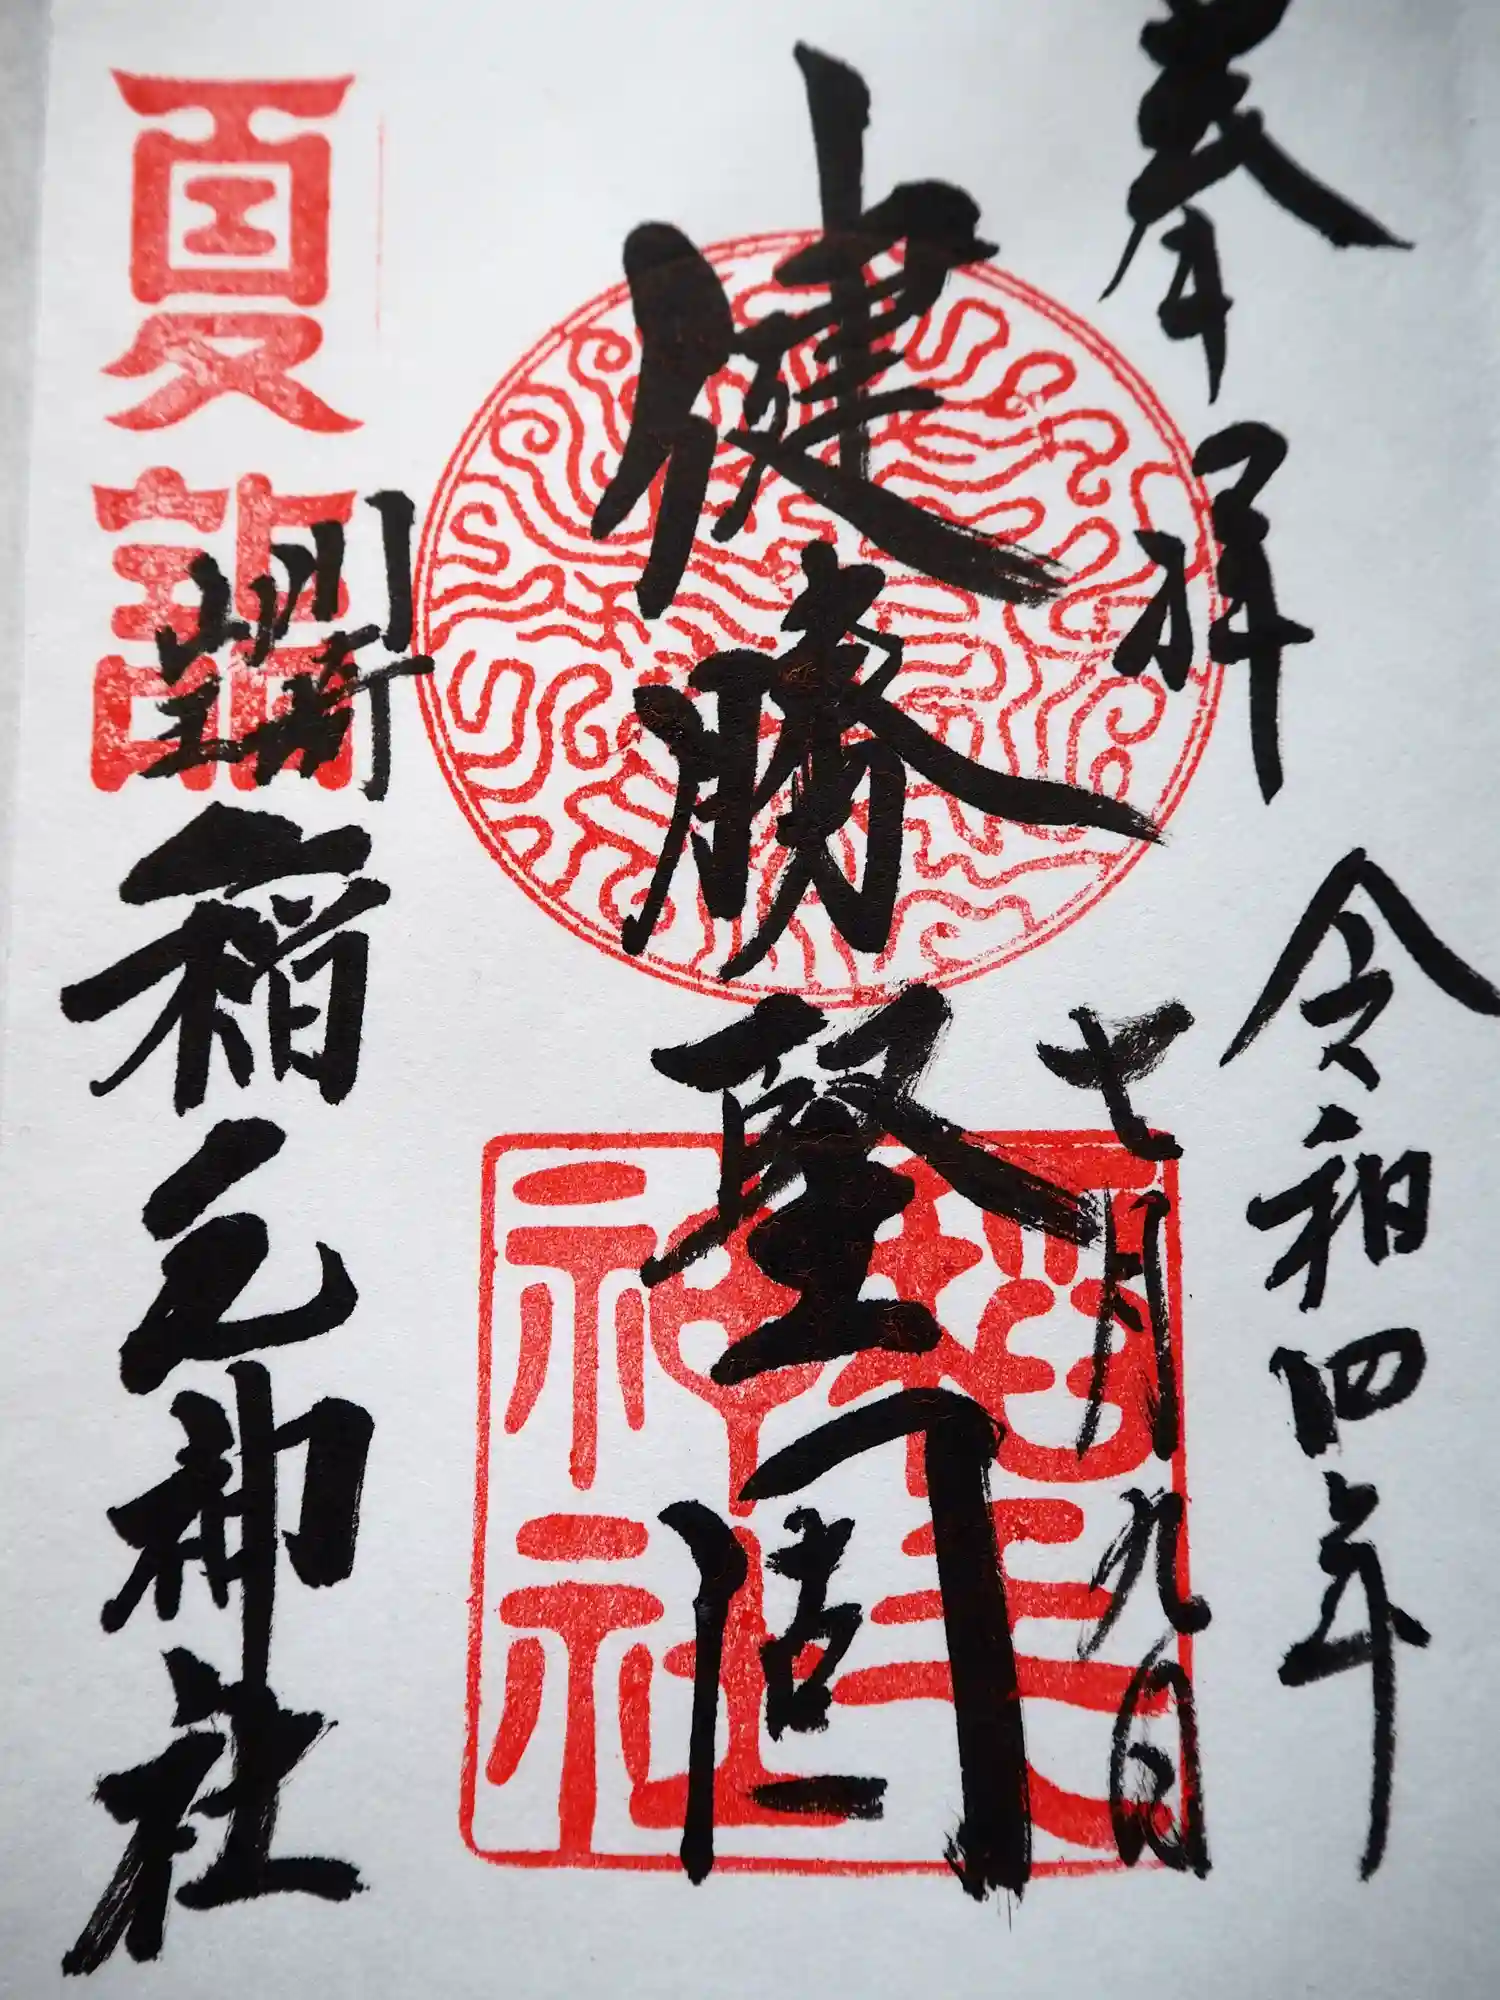 奉拝
令和四年
七月九日
健勝堅固
稲毛
神社
夏詣
稲毛神社